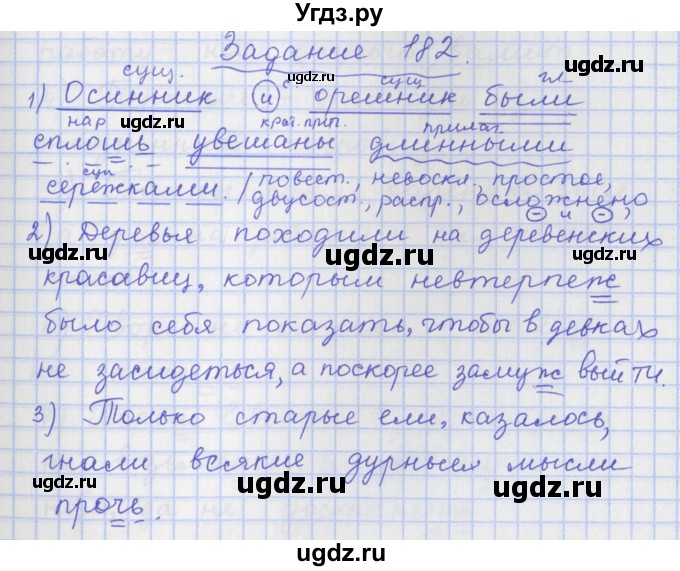 Угдз.ру
Задание 182.
сущ. сущ гл
1) Осинник и орешник были
нар крат. прич. прилаг
сплошь увешаны длинными
сущ
серёжками. / повест., невоскл., простое,
двусост., распр., осложнено
2) Деревья походили на деревенских
красавиц, которым невтерпеж
было себя показать, чтобы в девках
не засидеться, а поскорее замуж выйти.
3) Только старые ели, казалось,
гнали всякие дурные мысли
прочь.
ugdz.ru
ugdz.ru
ugdz.ru
ugdz.ru
ugdz.ru
ugdz.ru
ugdz.ru
ugdz.ru
ugdz.ru
ugdz.ru
ugdz.ru
ugdz.ru